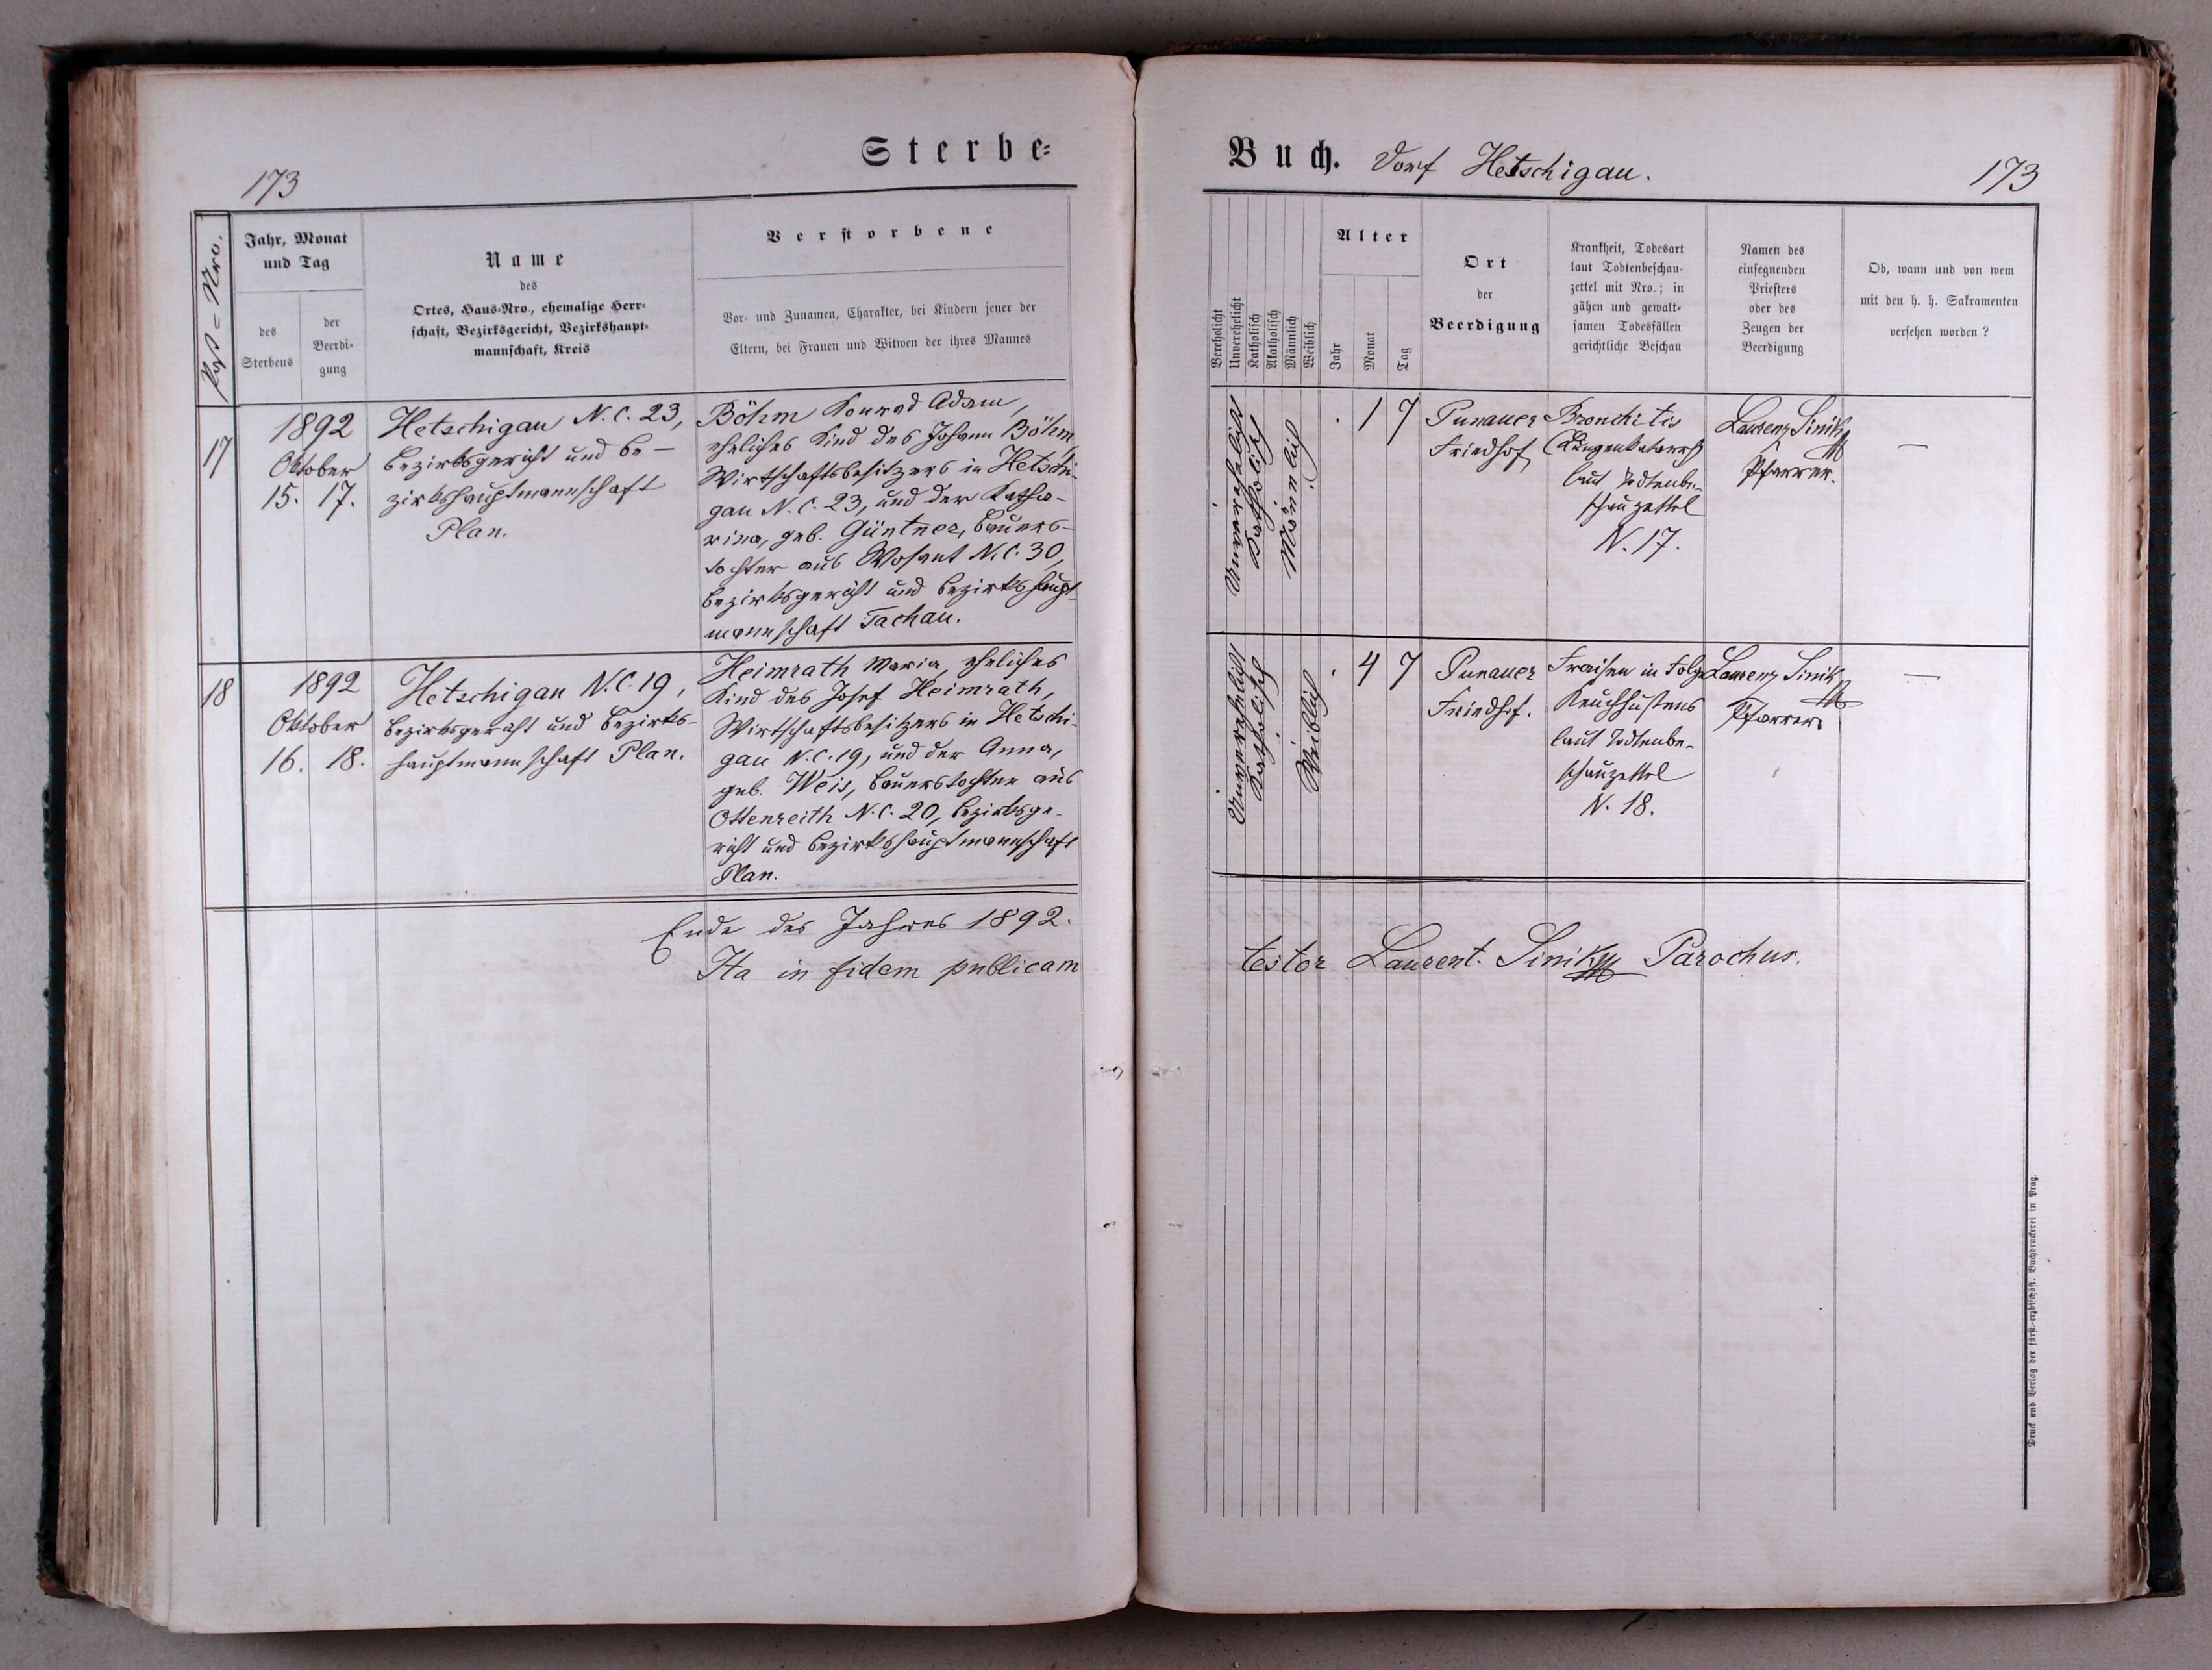 Sterbe-
173
Post=Nro.
Jahr, Monat
und Tag
des
Sterbens
der
Beerdi-
gung
Name
des
Ortes, Haus-Nro., ehemalige Herr-
schaft, Bezirksgericht, Bezirkshaupt-
mannschaft, Kreis
Verstorbene
Vor- und Zunamen, Charakter, bei Kindern jener der
Eltern, bei Frauen und Witwen der ihres Mannes
17
1892
Oktober
15. 17.
Hetschigau N.C. 23,
Bezirksgericht und Be-
zirkshauptmannschaft
Plan.
Böhm Konrad Adam,
eheliches Kind des Johann Böhm,
Wirtschaftsbesitzers in Hetschi-
gau N.C. 23, und der Katha-
rina, geb. Güntner, Bauers-
tochter aus Wosant N.C. 30,
Bezirksgericht und Bezirkshaupt-
mannschaft Tachau.
18
1892
Oktober
16. 18.
Hetschigau N.C. 19,
Bezirksgericht und Bezirks-
hauptmannschaft Plan.
Heimrath Maria, eheliches
Kind des Josef Heimrath,
Wirtschaftsbesitzers in Hetschi-
gau N.C. 19, und der Anna,
geb. Weis, Bauerstochter aus
Ottenreith N.C. 20, Bezirksge-
richt und Bezirkshauptmannschaft
Plan.
Ende des Jahres 1892.
Ita in fidem publicam
Buch. Dorf Hetschigau.
173
Verehelicht
Unverehelicht
Katholisch
Akatholisch
Männlich
Weiblich
Alter
Jahr
Monat
Tag
Ort
der
Beerdigung
Krankheit, Todesart
laut Todtenbeschau-
zettel mit Nro.; in
gähen und gewalt-
samen Todesfällen
gerichtliche Beschau
Namen des
einsegnenden
Priesters
oder des
Zeugen der
Beerdigung
Ob, wann und von wem
mit den h. h. Sakramenten
versehen worden?
Unverehelicht
Katholisch
Männlich
. 1 7
Punauer
Friedhof
Bronchitis
(Lungenkatarrh)
laut Todtenbe-
schauzettel
N. 17.
Laurenz Sinik
Pfarrer.
—
Unverehelicht
Katholisch
Weiblich
. 4 7
Punauer
Friedhof.
Fraisen in Folge
Keuchhustens
laut Todtenbe-
schauzettel
N. 18.
Laurenz Sinik
Pfarrer.
—
testor Laurent. Sinik Parochus.
Druck und Verlag der fürst.-erzbischöfl. Buchdruckerei in Prag.